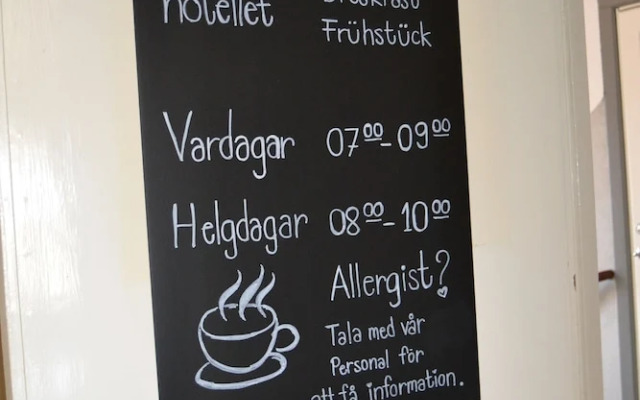 hotellet Breakfast
Frühstück
Vardagar 07⁰⁰-09⁰⁰
Helgdagar 08⁰⁰-10⁰⁰
Allergist?
Tala med vår
Personal för
att få information.